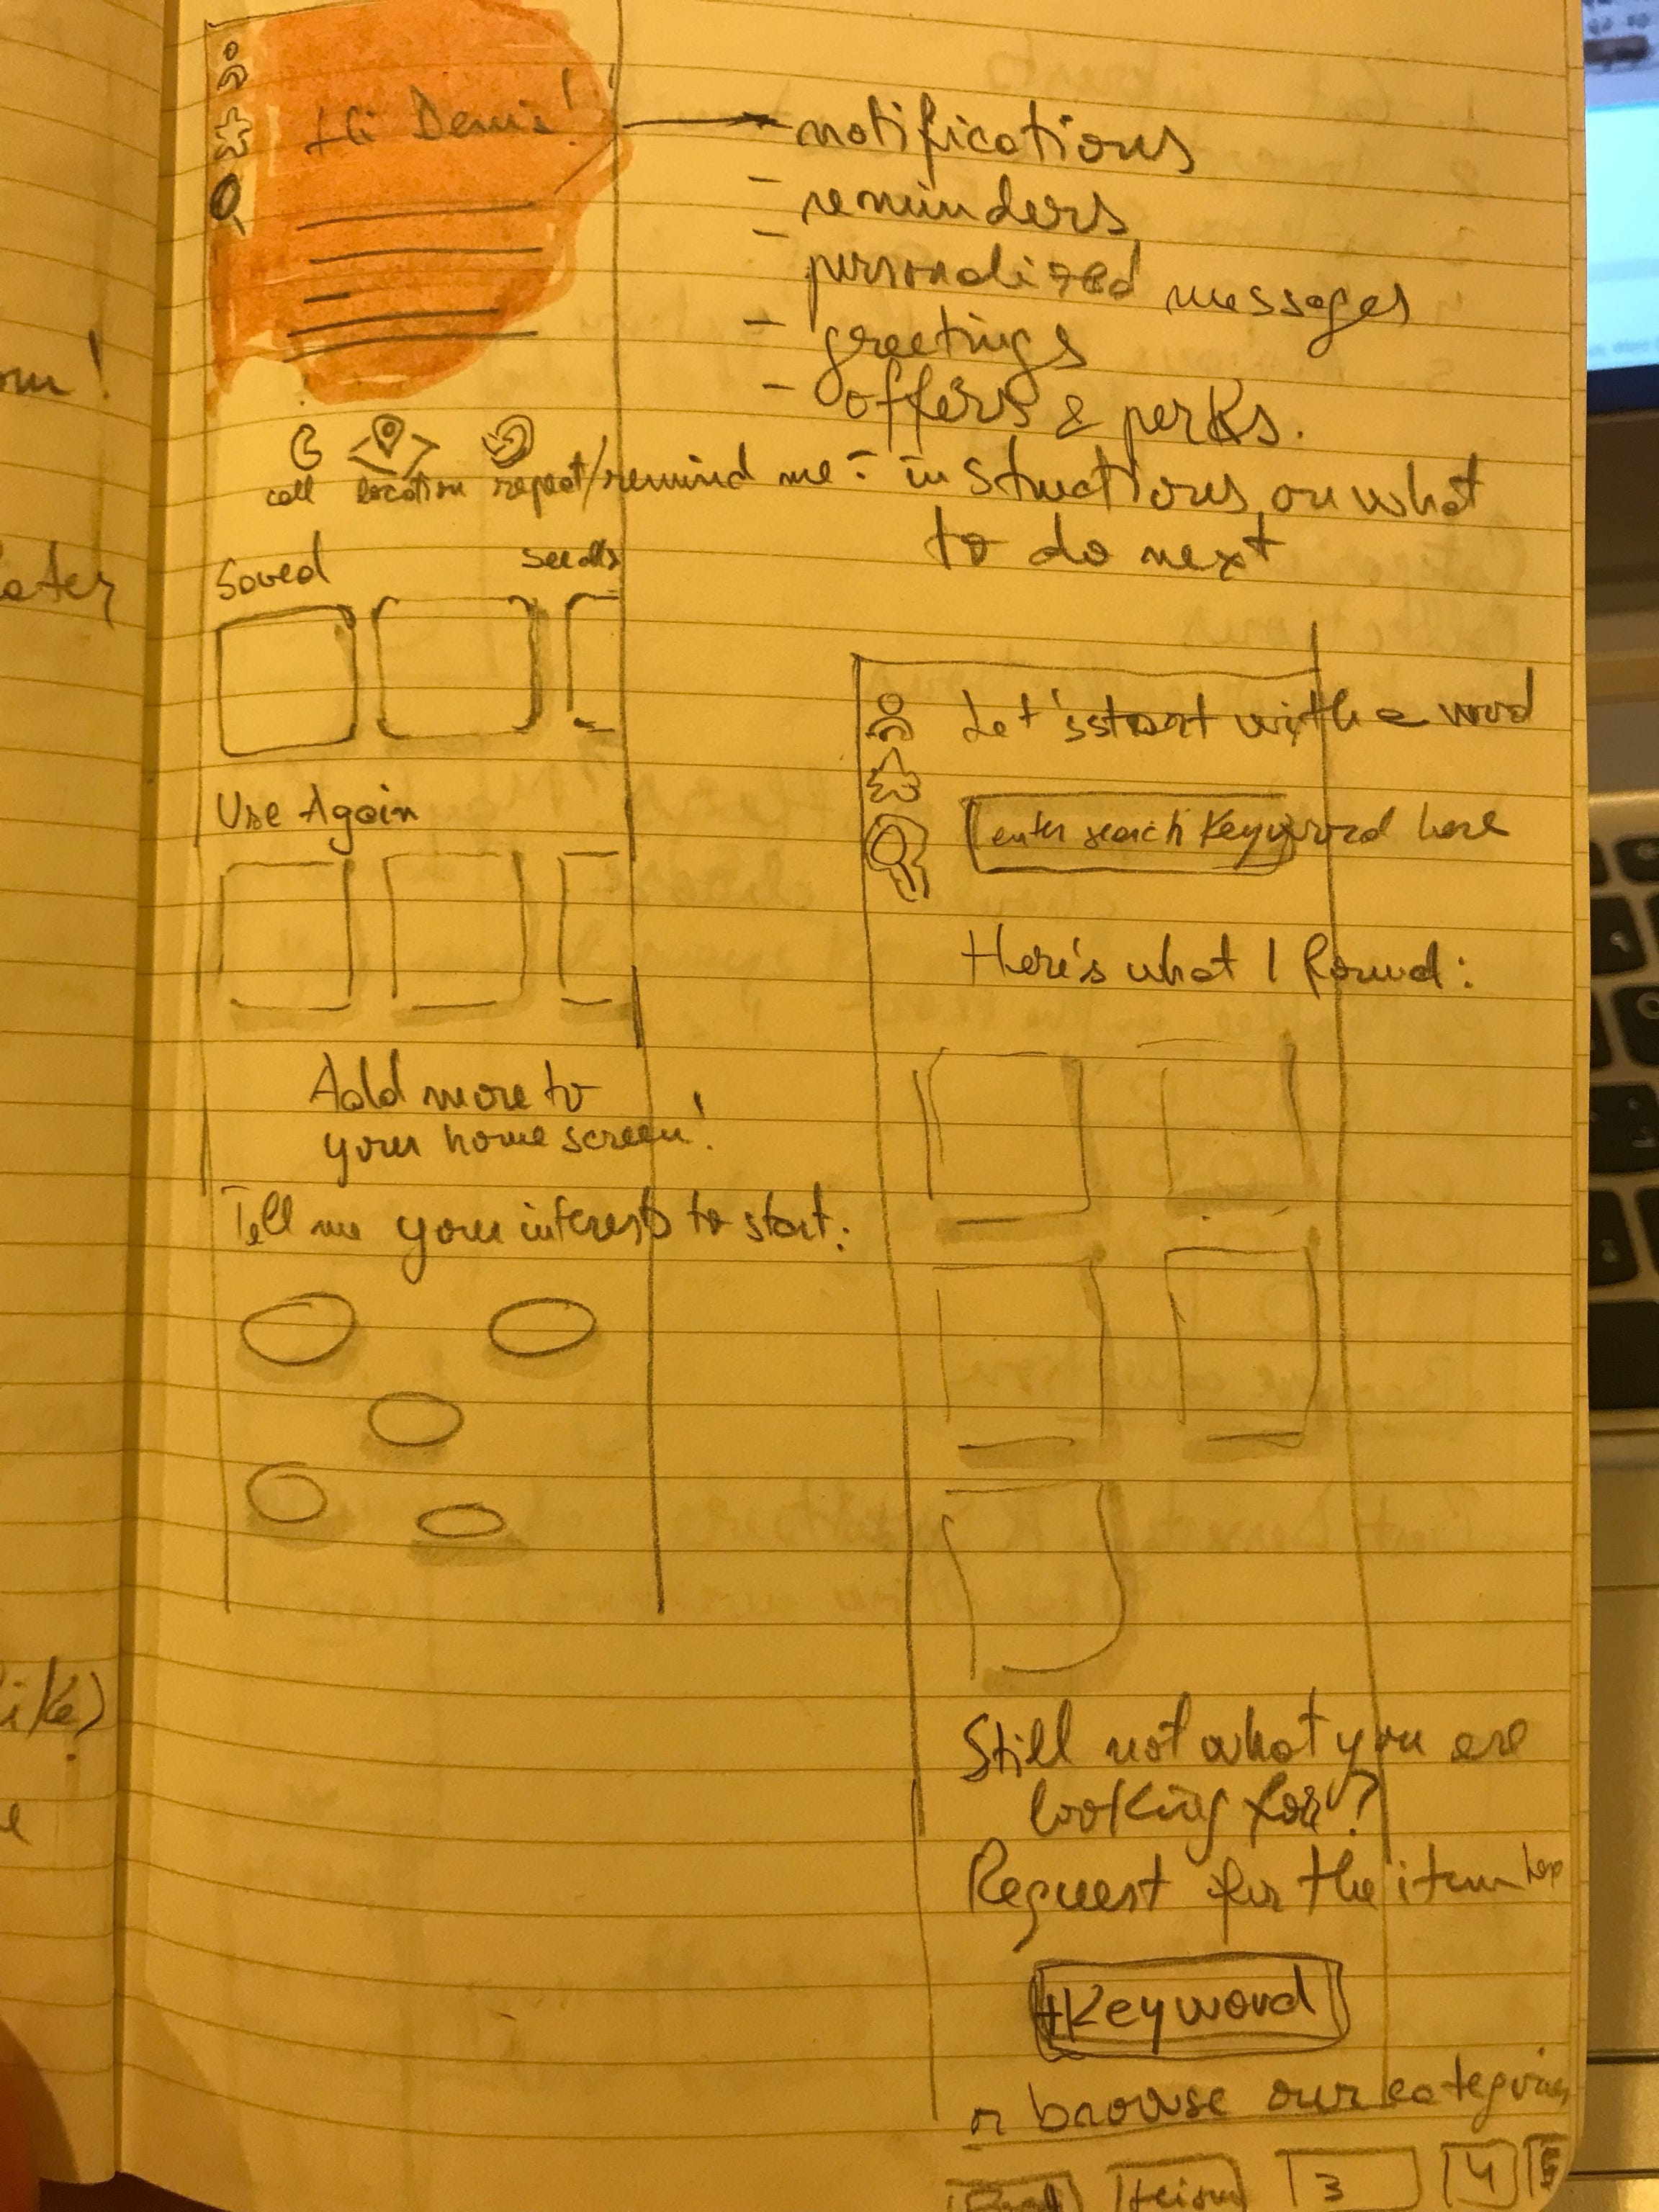 Hi Denis!
notifications
- reminders
- personalized messages
- greetings
- offers & perks.
call location repeat/remind me: instructions on what
to do next
Saved See all>
Use Again
Add more to
your home screen!
Tell me your interests to start:
Let's start with a word
enter search keyword here
Here's what I found:
Still not what you are
looking for?
Request for the item
+Keyword
or browse our categories
3 4 5
om!
later
like)
e